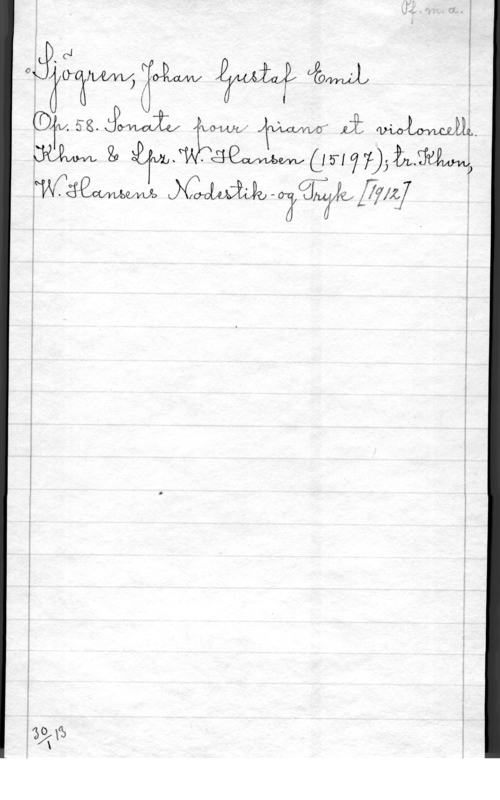 Pf. m. a.
Sjögren, Johan Gustaf Emil
Op. 58. Sonate pour piano et violoncelle.
Khvn & Lpz. W. Hansen (15197); tr. Khvn,
W. Hansens Nodestik- og Tryk [1912]
30/1 13